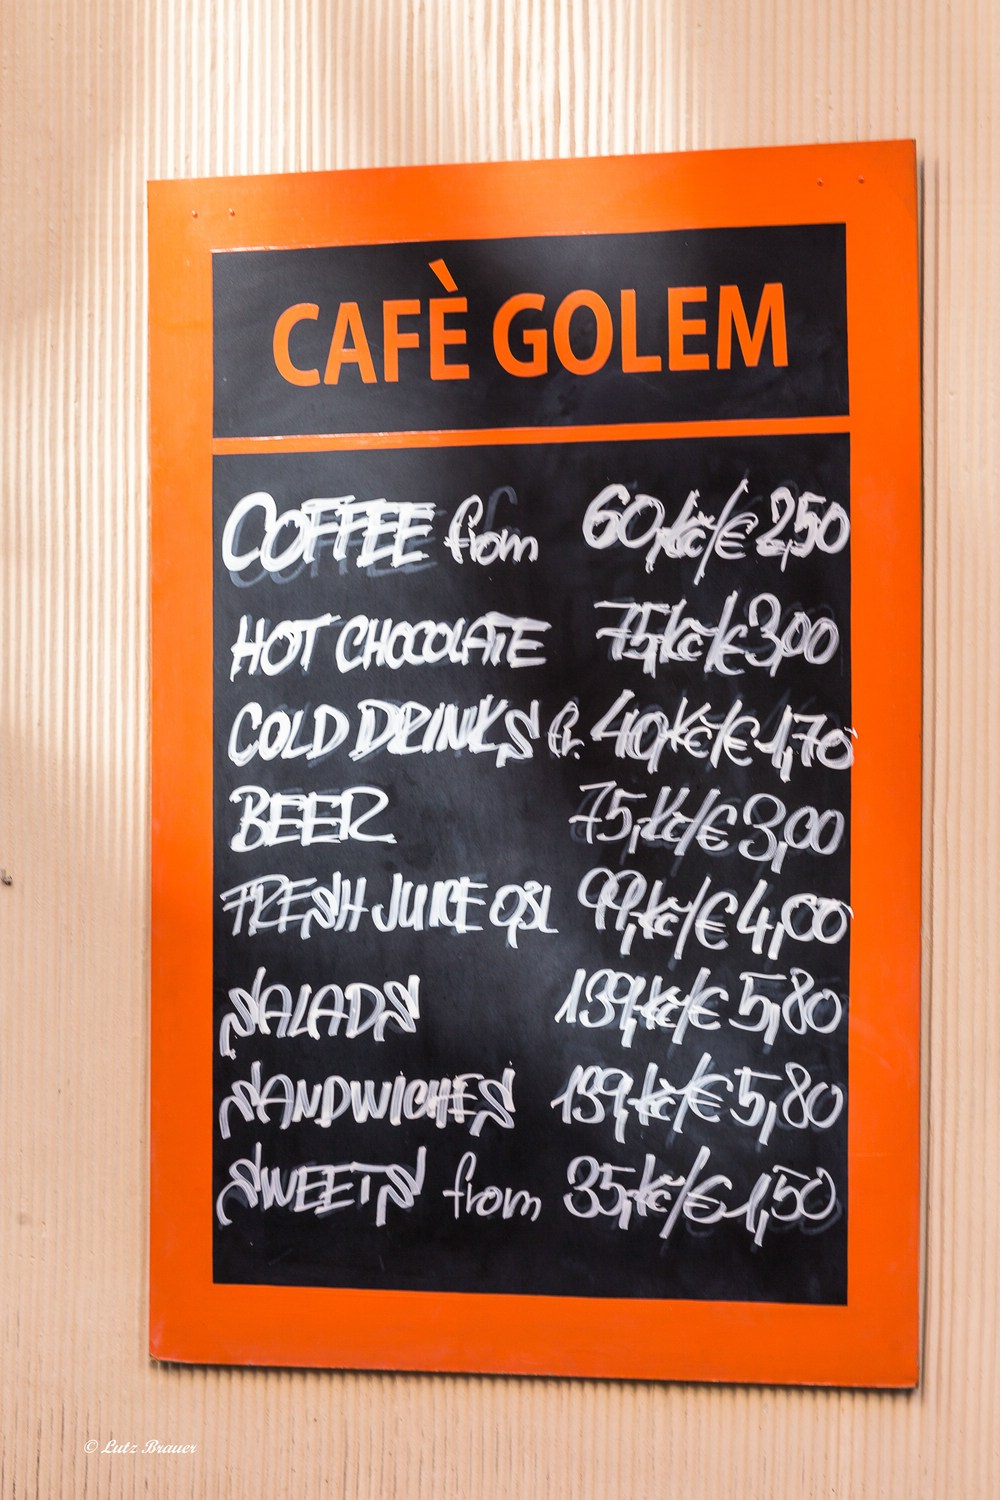 CAFÈ GOLEM
COFFEE from 60,-Kč/€ 2,50
HOT CHOCOLATE 75,-Kč/€ 3,00
COLD DRINKS fr. 40,-Kč/€ 1,70
BEER 75,-Kč/€ 3,00
FRESH JUICE 0,3L 99,-Kč/€ 4,00
SALADS 139,-Kč/€ 5,80
SANDWICHES 139,-Kč/€ 5,80
SWEETS from 35,-Kč/€ 1,50
© Lutz Brauer